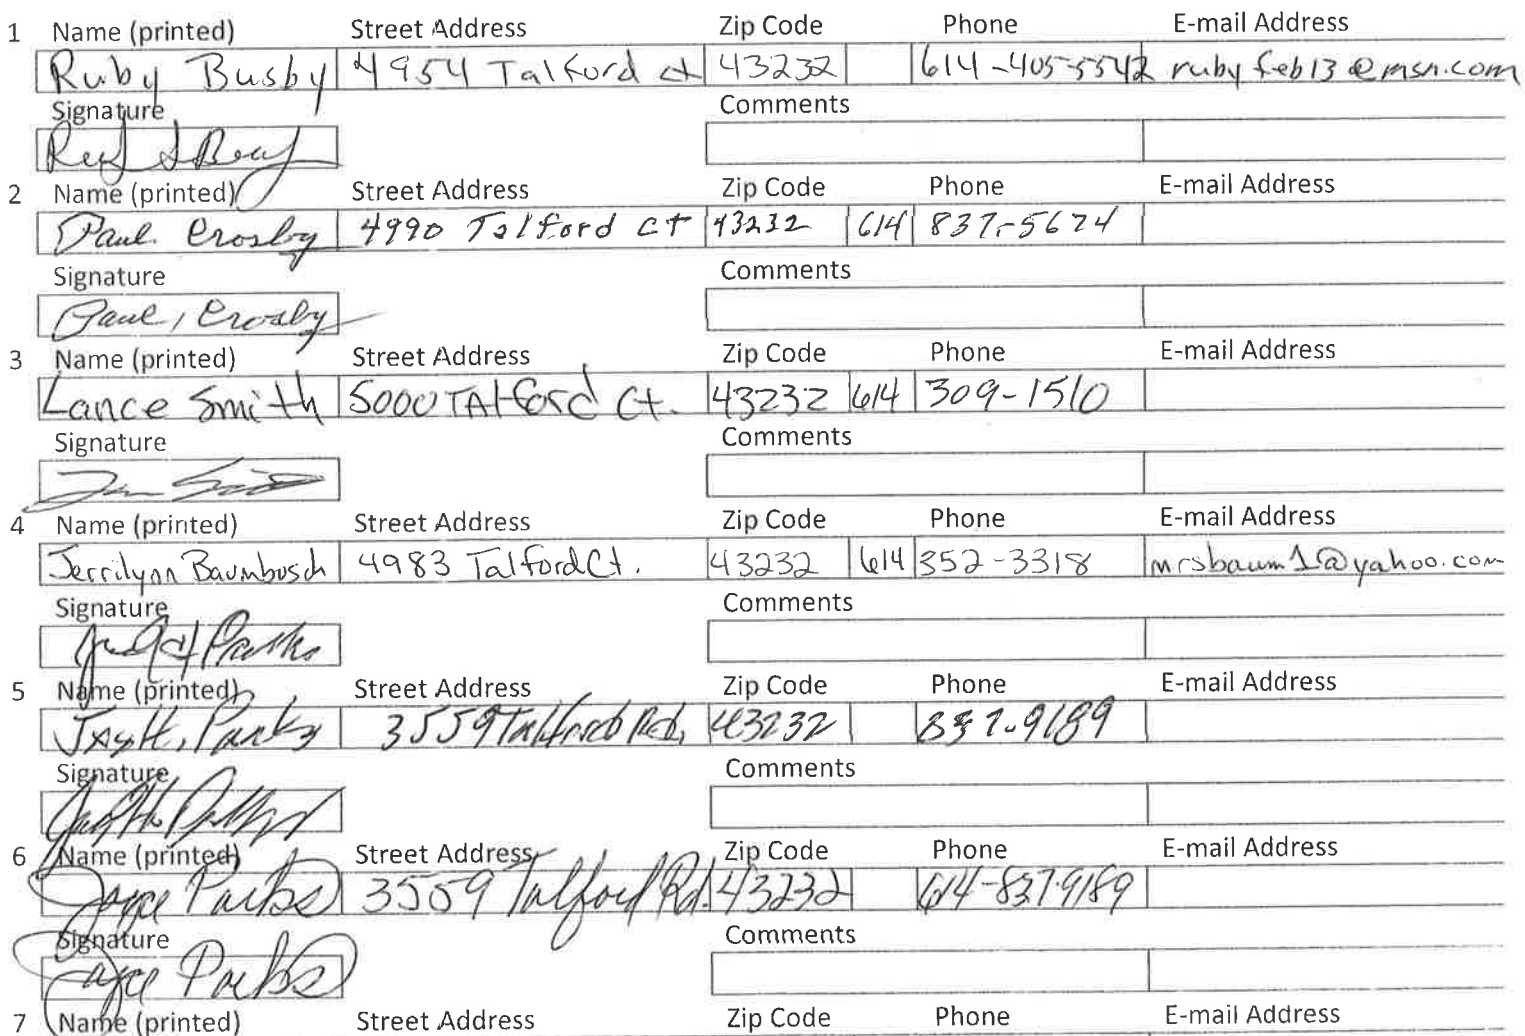 1 Name (printed) Street Address Zip Code Phone E-mail Address
Ruby Busby 4954 Talford ct 43232 614-405-5542 rubyfeb13@msn.com
Signature Comments
2 Name (printed) Street Address Zip Code Phone E-mail Address
Paul Crosby 4990 Talford ct 43232 614 837-5674
Signature Comments
Paul, Crosby
3 Name (printed) Street Address Zip Code Phone E-mail Address
Lance Smith 5000 TAlford Ct. 43232 614 309-1510
Signature Comments
4 Name (printed) Street Address Zip Code Phone E-mail Address
Jerrilynn Baumbusch 4983 Talford Ct. 43232 614 352-3318 mrsbaum1@yahoo.com
Signature Comments
5 Name (printed) Street Address Zip Code Phone E-mail Address
JAy H. Parks 3559 Talford Rd. 43232 837-9189
Signature Comments
6 Name (printed) Street Address Zip Code Phone E-mail Address
Joyce Parks 3559 Talford Rd. 43232 614-837-9189
Signature Comments
Joyce Parks
7 Name (printed) Street Address Zip Code Phone E-mail Address